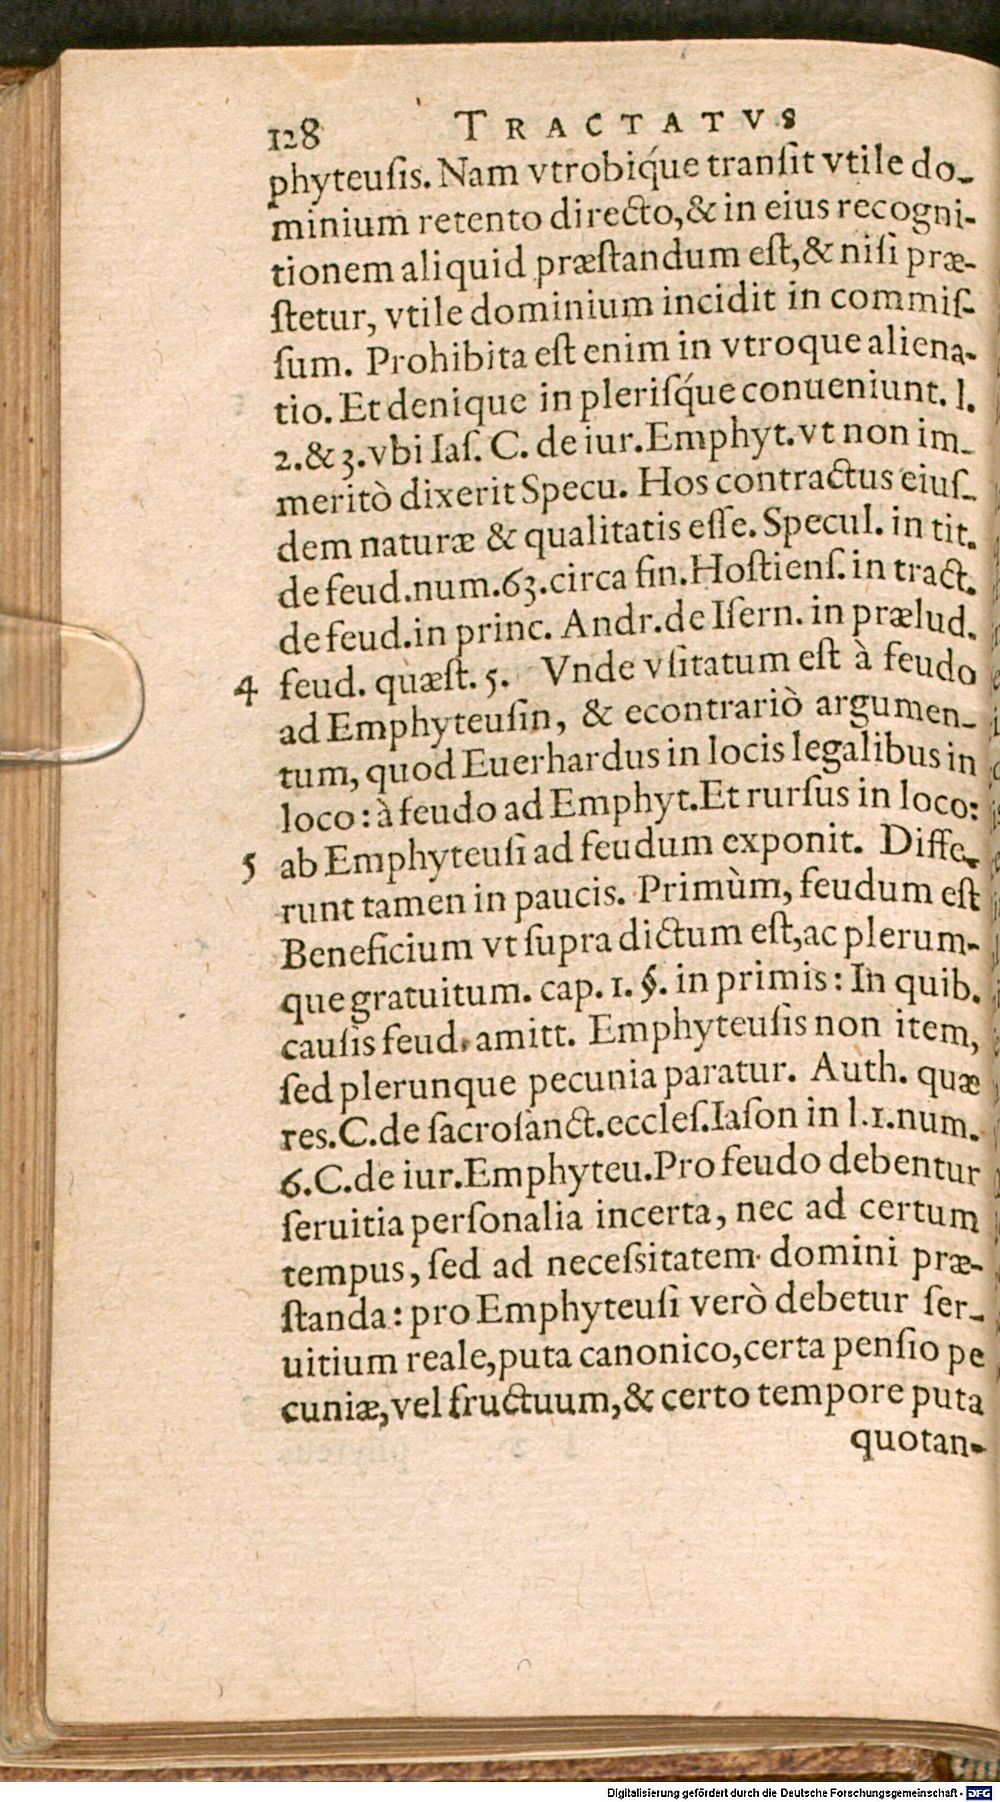 128 TRACTATVS
phyteuſis. Nam vtrobiq́ue tranſit vtile do-
minium retento directo,& in eius recogni-
tionem aliquid præſtandum eſt,& niſi præ-
ſtetur, vtile dominium incidit in commiſ-
ſum. Prohibita eſt enim in vtroque aliena-
tio. Et denique in pleriſq́ue conueniunt. l.
2.& 3.vbi Iaſ. C. de iur.Emphyt.vt non im-
meritò dixerit Specu. Hos contractus eiuſ-
dem naturæ & qualitatis eſſe. Specul. in tit.
de feud.num.63.circa fin.Hoſtienſ. in tract.
de feud.in princ. Andr.de Iſern. in prælud.
4 feud. quæſt. 5. Vnde vſitatum eſt à feudo
ad Emphyteuſin, & econtrariò argumen-
tum, quod Euerhardus in locis legalibus in
loco: à feudo ad Emphyt.Et rurſus in loco:
5 ab Emphyteuſi ad feudum exponit. Diffe-
runt tamen in paucis. Primùm, feudum eſt
Beneficium vt ſupra dictum eſt,ac plerum-
que gratuitum. cap. 1. §. in primis: In quib.
cauſis feud. amitt. Emphyteuſis non item,
ſed plerunque pecunia paratur. Auth. quæ
res.C.de ſacroſanct.eccleſ.Iaſon in l.1.num.
6.C.de iur.Emphyteu.Pro feudo debentur
ſeruitia perſonalia incerta, nec ad certum
tempus, ſed ad neceſsitatem domini præ-
ſtanda: pro Emphyteuſi verò debetur ſer-
uitium reale,puta canonico,certa penſio pe
cuniæ,vel fructuum,& certo tempore puta
quotan-
Digitalisierung gefördert durch die Deutsche Forschungsgemeinschaft - DFG